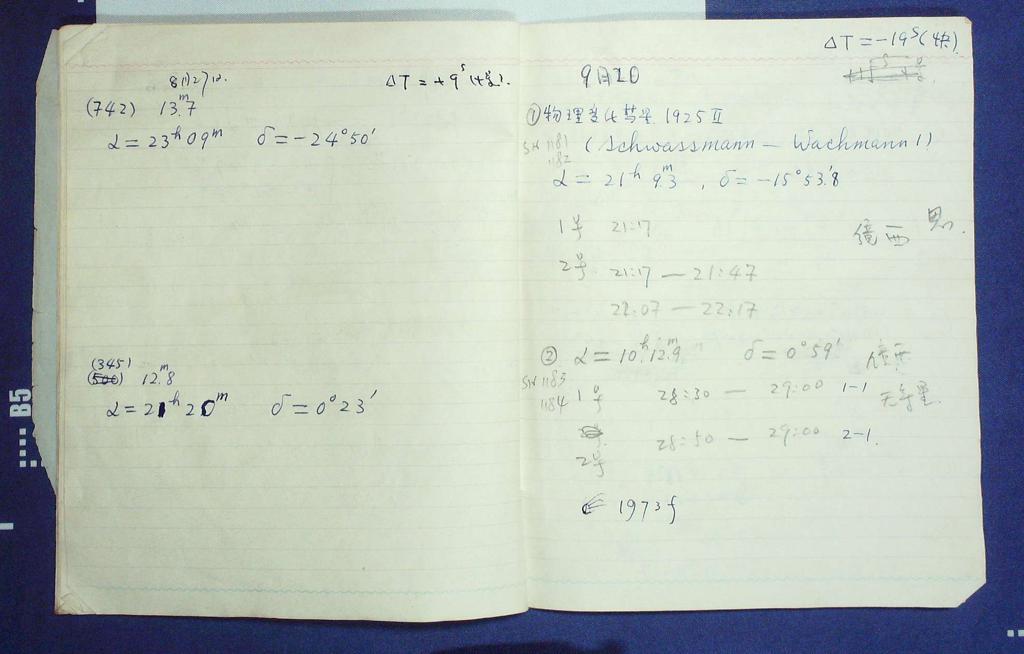 ΔT=+9ˢ
(742) 13.ᵐ7
α=23ʰ09ᵐ δ=-24°50′
(345)
(500) 12.ᵐ8
α=21ʰ20ᵐ δ=0°23′
ΔT=-19ˢ(快)
9月20
①物理变化彗星 1925Ⅱ
SW 1181
1182
(Schwassmann — Wachmann 1)
α= 21ʰ 9.ᵐ3 , δ=-15°53.′8
1号 21:17
镜西
2号 21:17 — 21:47
22:07 — 22:17
② α=10ʰ12.ᵐ9 δ=0°59′ 镜西
SW 1183
1184
1号 28:30 — 29:00 1-1 无导星
2号 28:50 — 29:00 2-1.
1973f
B5